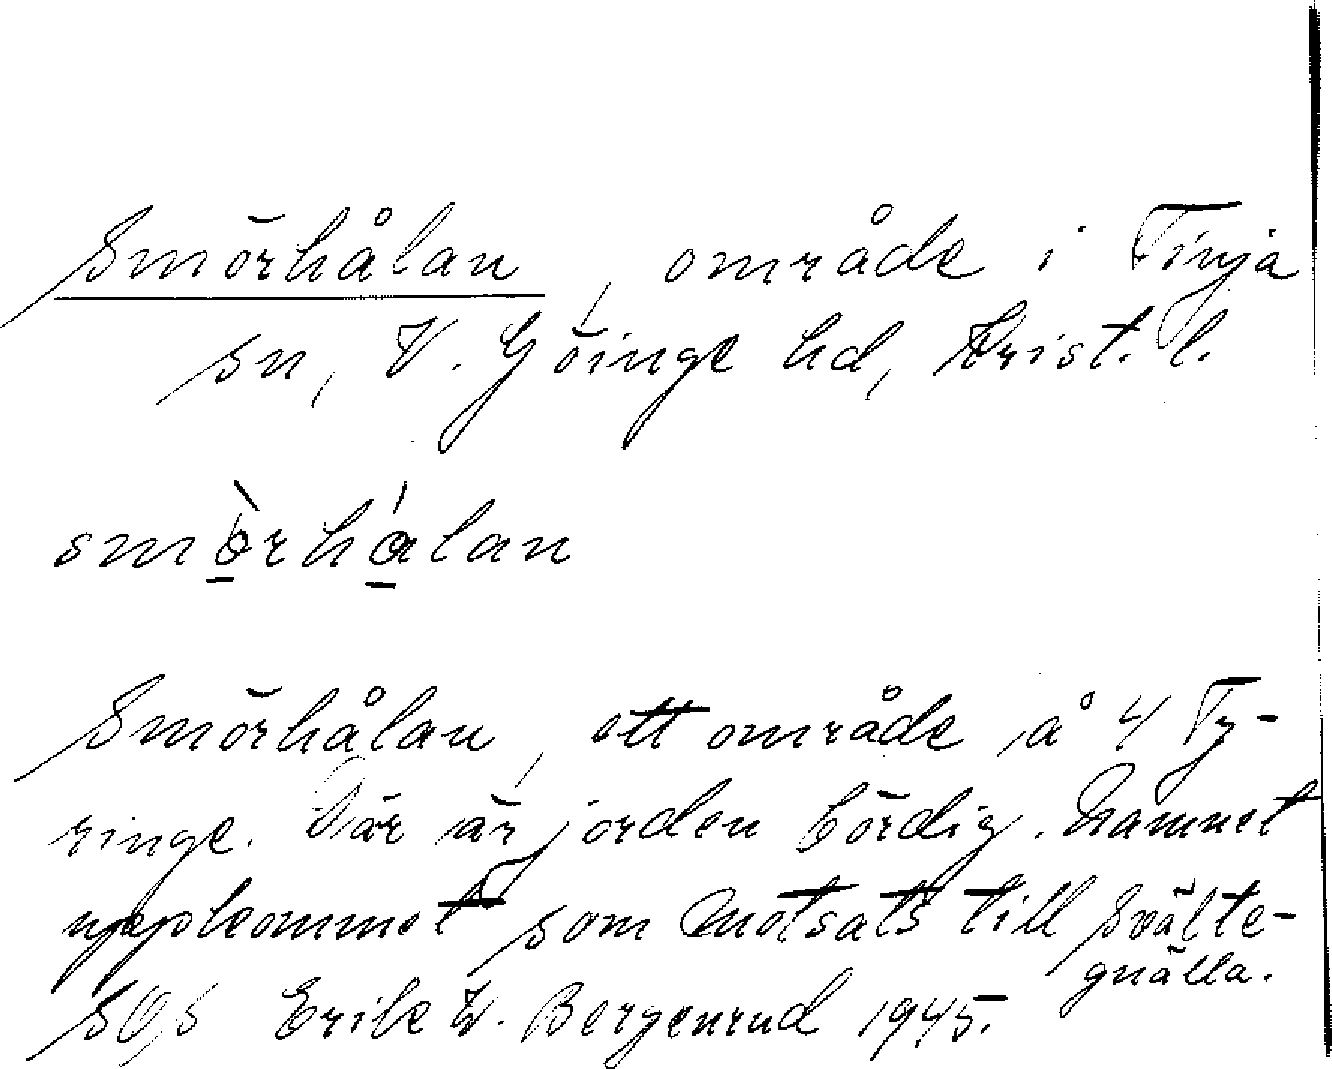 Smörhålan, område i Finja
sn, V. Göinge hd, Krist. l.
smòrhálan
Smörhålan, ett område å 4 Ty-
ringe. Där är jorden bördig. Namnet
uppkommet som motsats till Svälte-
gnälla.
Erik W. Bergenrud 1945.